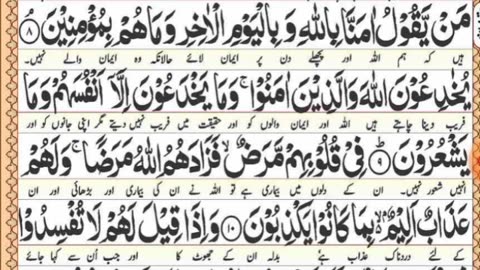 مَنْ يَّقُوْلُ اٰمَنَّا بِاللّٰهِ وَ بِالْيَوْمِ الْاٰخِرِ وَمَا هُمْ بِمُؤْمِنِيْنَ ۘ ۸
ہیں کہ ہم اللہ اور پچھلے دن پر ایمان لائے حالانکہ وہ ایمان والے نہیں۔
يُخٰدِعُوْنَ اللّٰهَ وَالَّذِيْنَ اٰمَنُوْا ۚ وَمَا يَخْدَعُوْنَ اِلَّآ اَنْفُسَهُمْ وَمَا
فریب دینا چاہتے ہیں اللہ اور ایمان والوں کو اور حقیقت میں فریب نہیں دیتے مگر اپنی جانوں کو اور
يَشْعُرُوْنَ ۹ فِيْ قُلُوْبِهِمْ مَّرَضٌ ۙ فَزَادَهُمُ اللّٰهُ مَرَضًا ۚ وَلَهُمْ
انہیں شعور نہیں۔ ان کے دلوں میں بیماری ہے تو اللہ نے ان کی بیماری اور بڑھائی اور ان
عَذَابٌ اَلِيْمٌ ۢ ۙ بِمَا كَانُوْا يَكْذِبُوْنَ ۱۰ وَاِذَا قِيْلَ لَهُمْ لَا تُفْسِدُوْا
کے لئے دردناک عذاب ہے بدلہ ان کے جھوٹ کا اور جب اُن سے کہا جائے